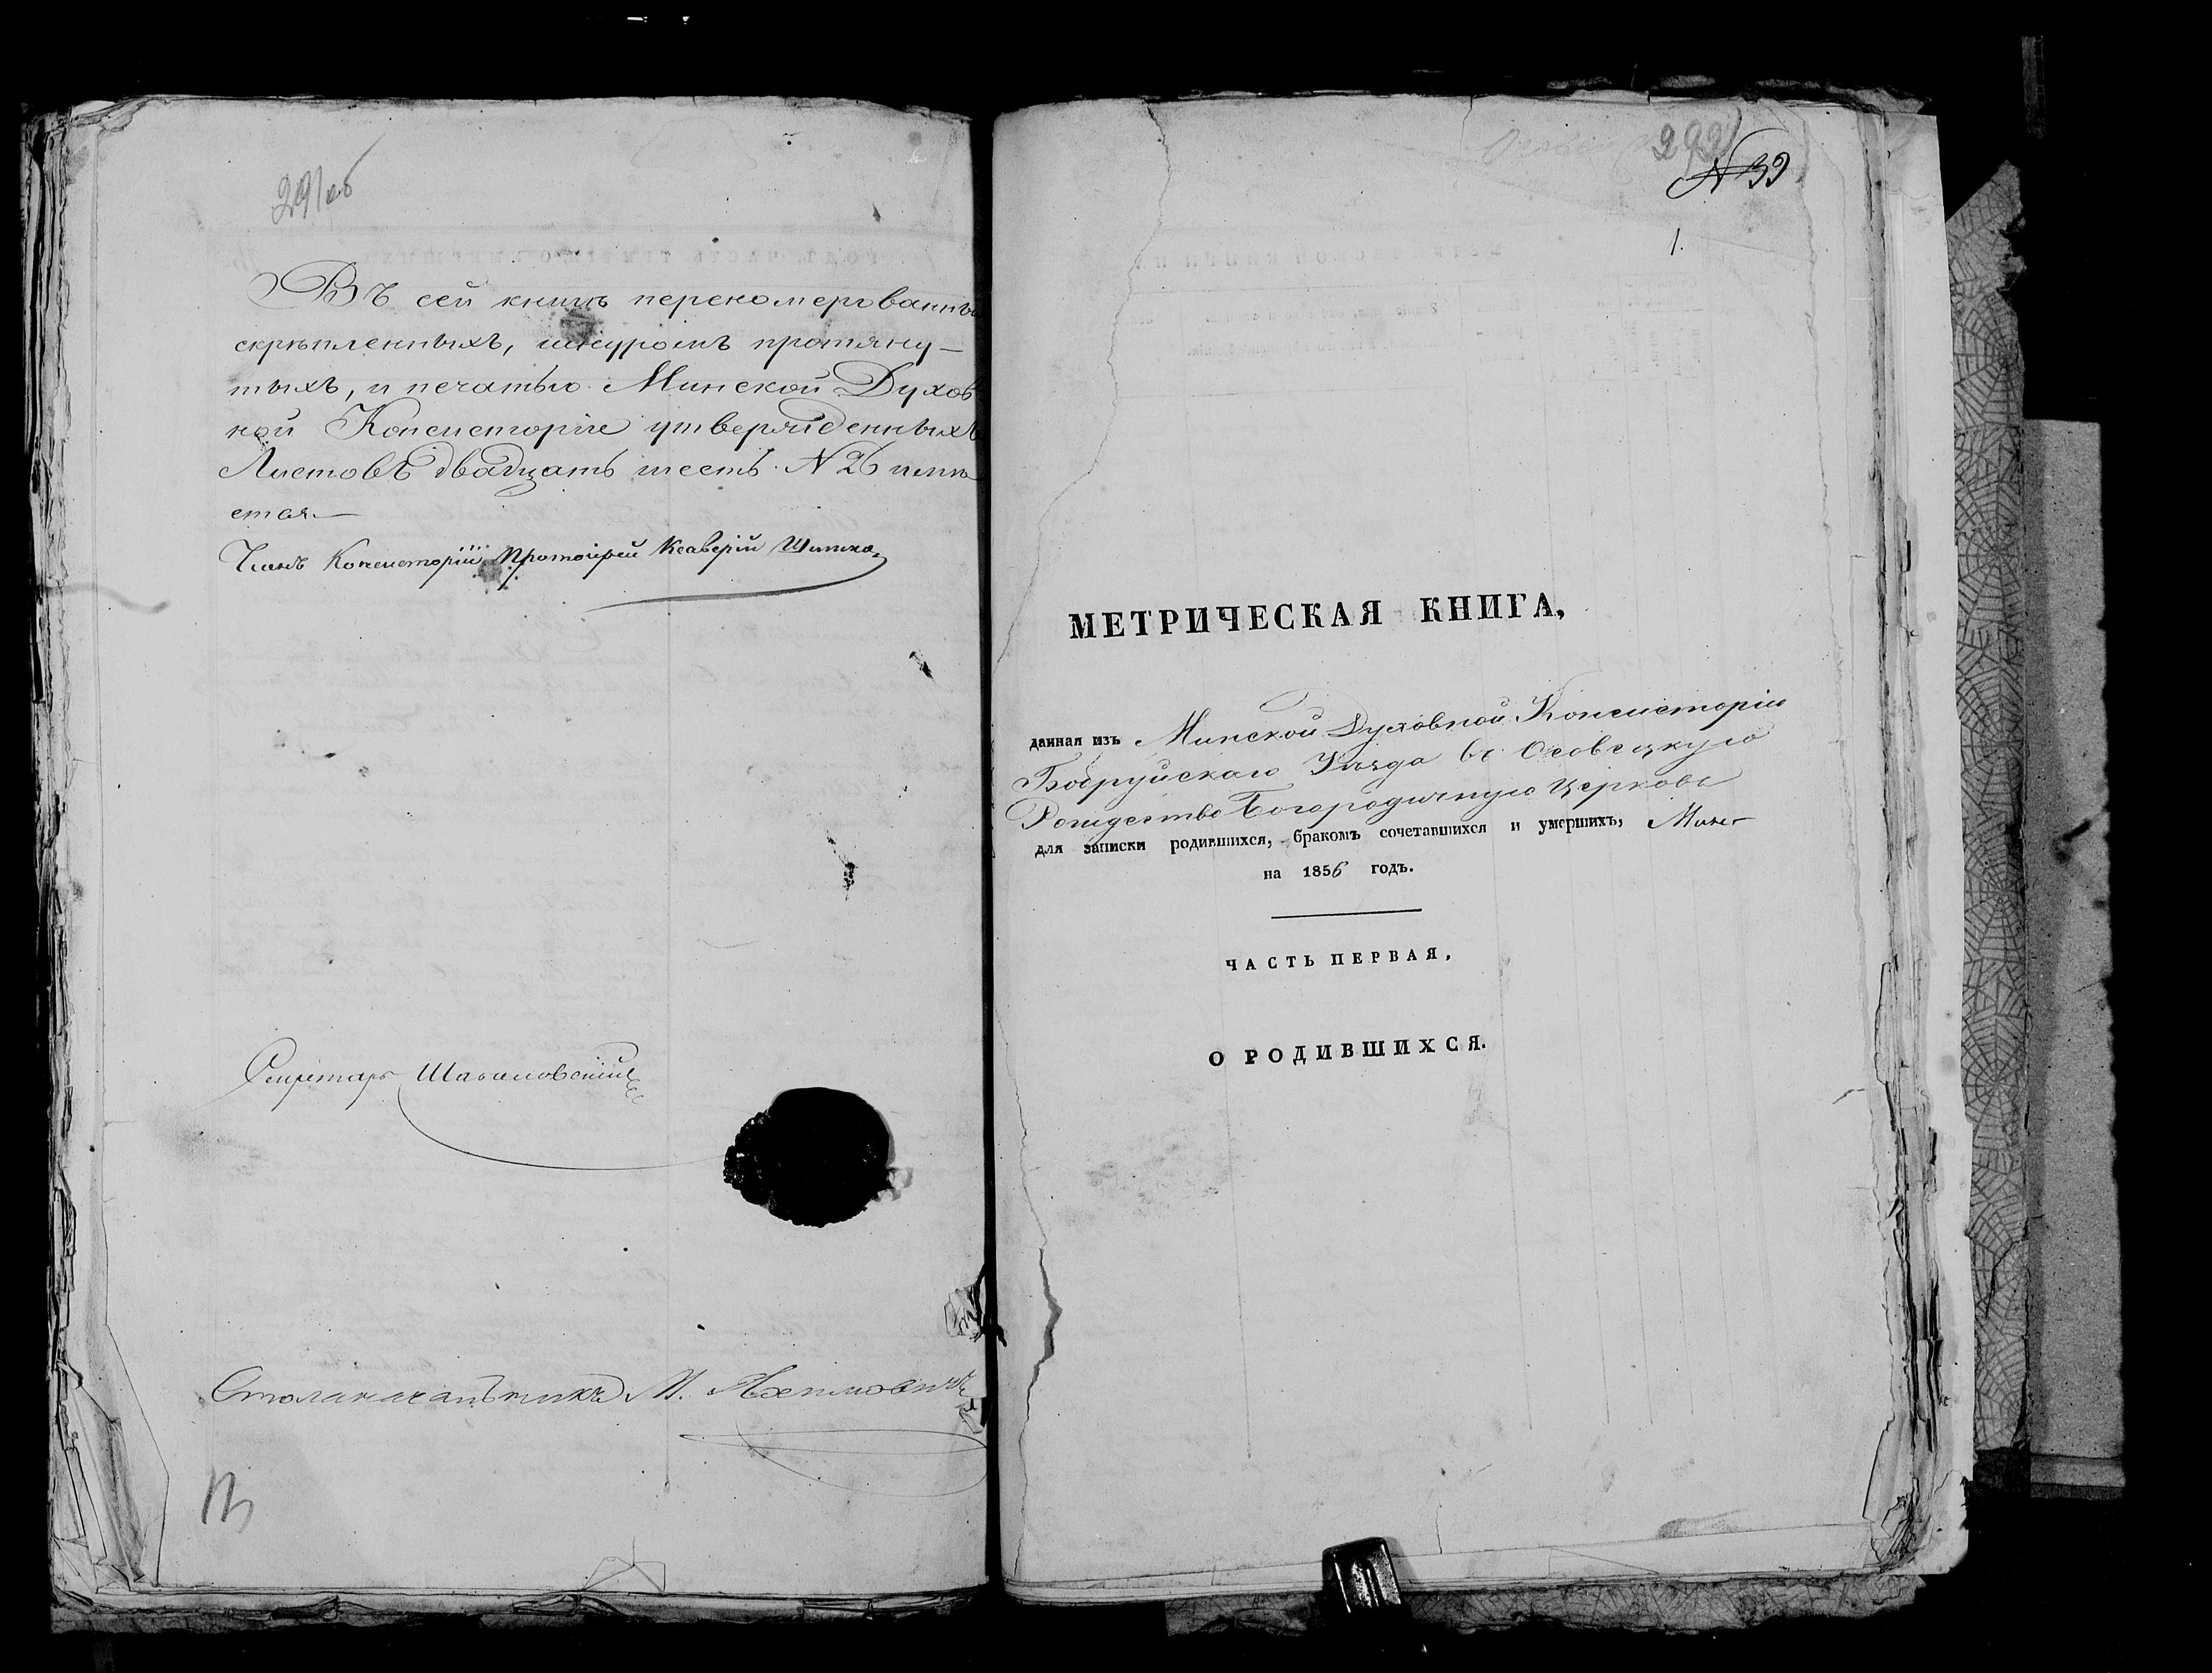 291об
Въ сей книгѣ переномерованны
скрѣпленныхъ, шнуромъ протяну-
тыхъ, и печатью Минской Духов
ной Консисторіи утвержденныхъ
Листовъ двадцать шесть. № 26 имѣ
ется.—
Членъ Консисторіи Протоіерей Ксаверій
Секретарь
Столоначальникъ М.
292
№ 39
1.
МЕТРИЧЕСКАЯ КНИГА,
данная изъ Минской Духовной Консисторіи
Бобруйскаго Уѣзда въ Осовецкую
Рождество Богородичную Церковь
для записки родившихся, бракомъ сочетавшихся и умершихъ,
на 1856 годъ.
ЧАСТЬ ПЕРВАЯ,
О РОДИВШИХСЯ.